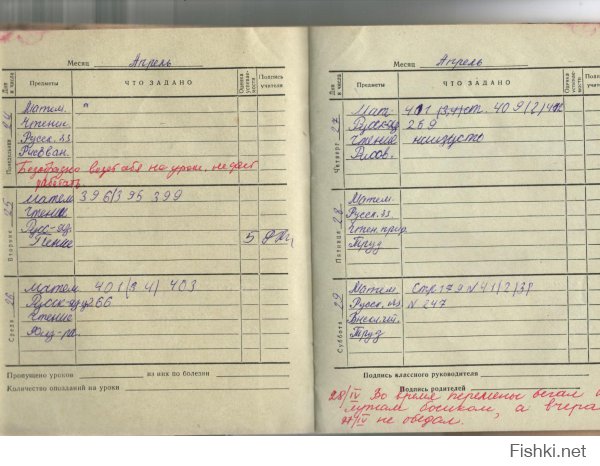 Месяц Апрель
Дни и числа Предметы ЧТО ЗАДАНО Оценка успеваемости Подпись учителя
Понедельник 24
Матем. "
Чтение
Русск. яз
Рисован.
Безобразно ведет себя на уроке, не дает
работать
Вторник 25
Матем 396 395 399
Чтение
Русс-яз.
Пение 5
Среда 26
матем 401 403
Русск-яз 266
Чтение
Физ-ра.
Пропущено уроков из них по болезни
Количество опозданий на уроки
Месяц Апрель
Дни и числа Предметы ЧТО ЗАДАНО Оценка успеваемости
Четверг 27
Мат- 401 ст. 409/2/
Русск-яз 269
Чтение наизусть
Рисов.
Пятница 28
Матем.
Русск. яз.
Чтен
Труд
Суббота 29
Матем. Стр 179 N 41/2/3/
Русск. яз. N 247
Внекл.чт.
Труд
Подпись классного руководителя
Подпись родителей
28/IV Во время перемены бегал
лужам босиком, а вчера
27/IV не обедал.
Fishki.net